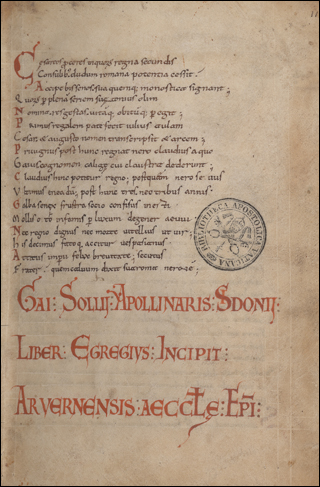 Cesareos proceres in quorum regna secundis
Consulib; dudum romana potentia cessit.
Accipe bis senos. sua quemq; monostica signant;
Quorum p plenam seriem suetonius olim
Nomina. res gestas. vitāq; obitūq; pegit;
Primus regalem patefecit iulius aulam
Cesar & augusto nomen transcripsit & arcem;
Privignus post hunc regnat nero claudius a quo
Gaius cognomen caligę cui castra dederunt;
Claudius hinc potitur regno; postquem nero sevus
Ultimus eneadū; post hunc tres nec tribus annis.
Galba senex frustra socio confisus inerti
Mollis otho infamis p luxum degener
Nec regno dignus nec morte vitellius ut vir.
His decimus fatoq; accitus vespasianus
imperii felix brevitate; secutus
Frater. quem calvum dixit sua roma nerone.
GAI: SOLLII: APOLLINARIS: SIDONII;
LIBER: EGREGIUS: INCIPIT:
ARVERNENSIS: AECCLE: EPI:
BIBLIOTHECA APOSTOLICA VATICANA